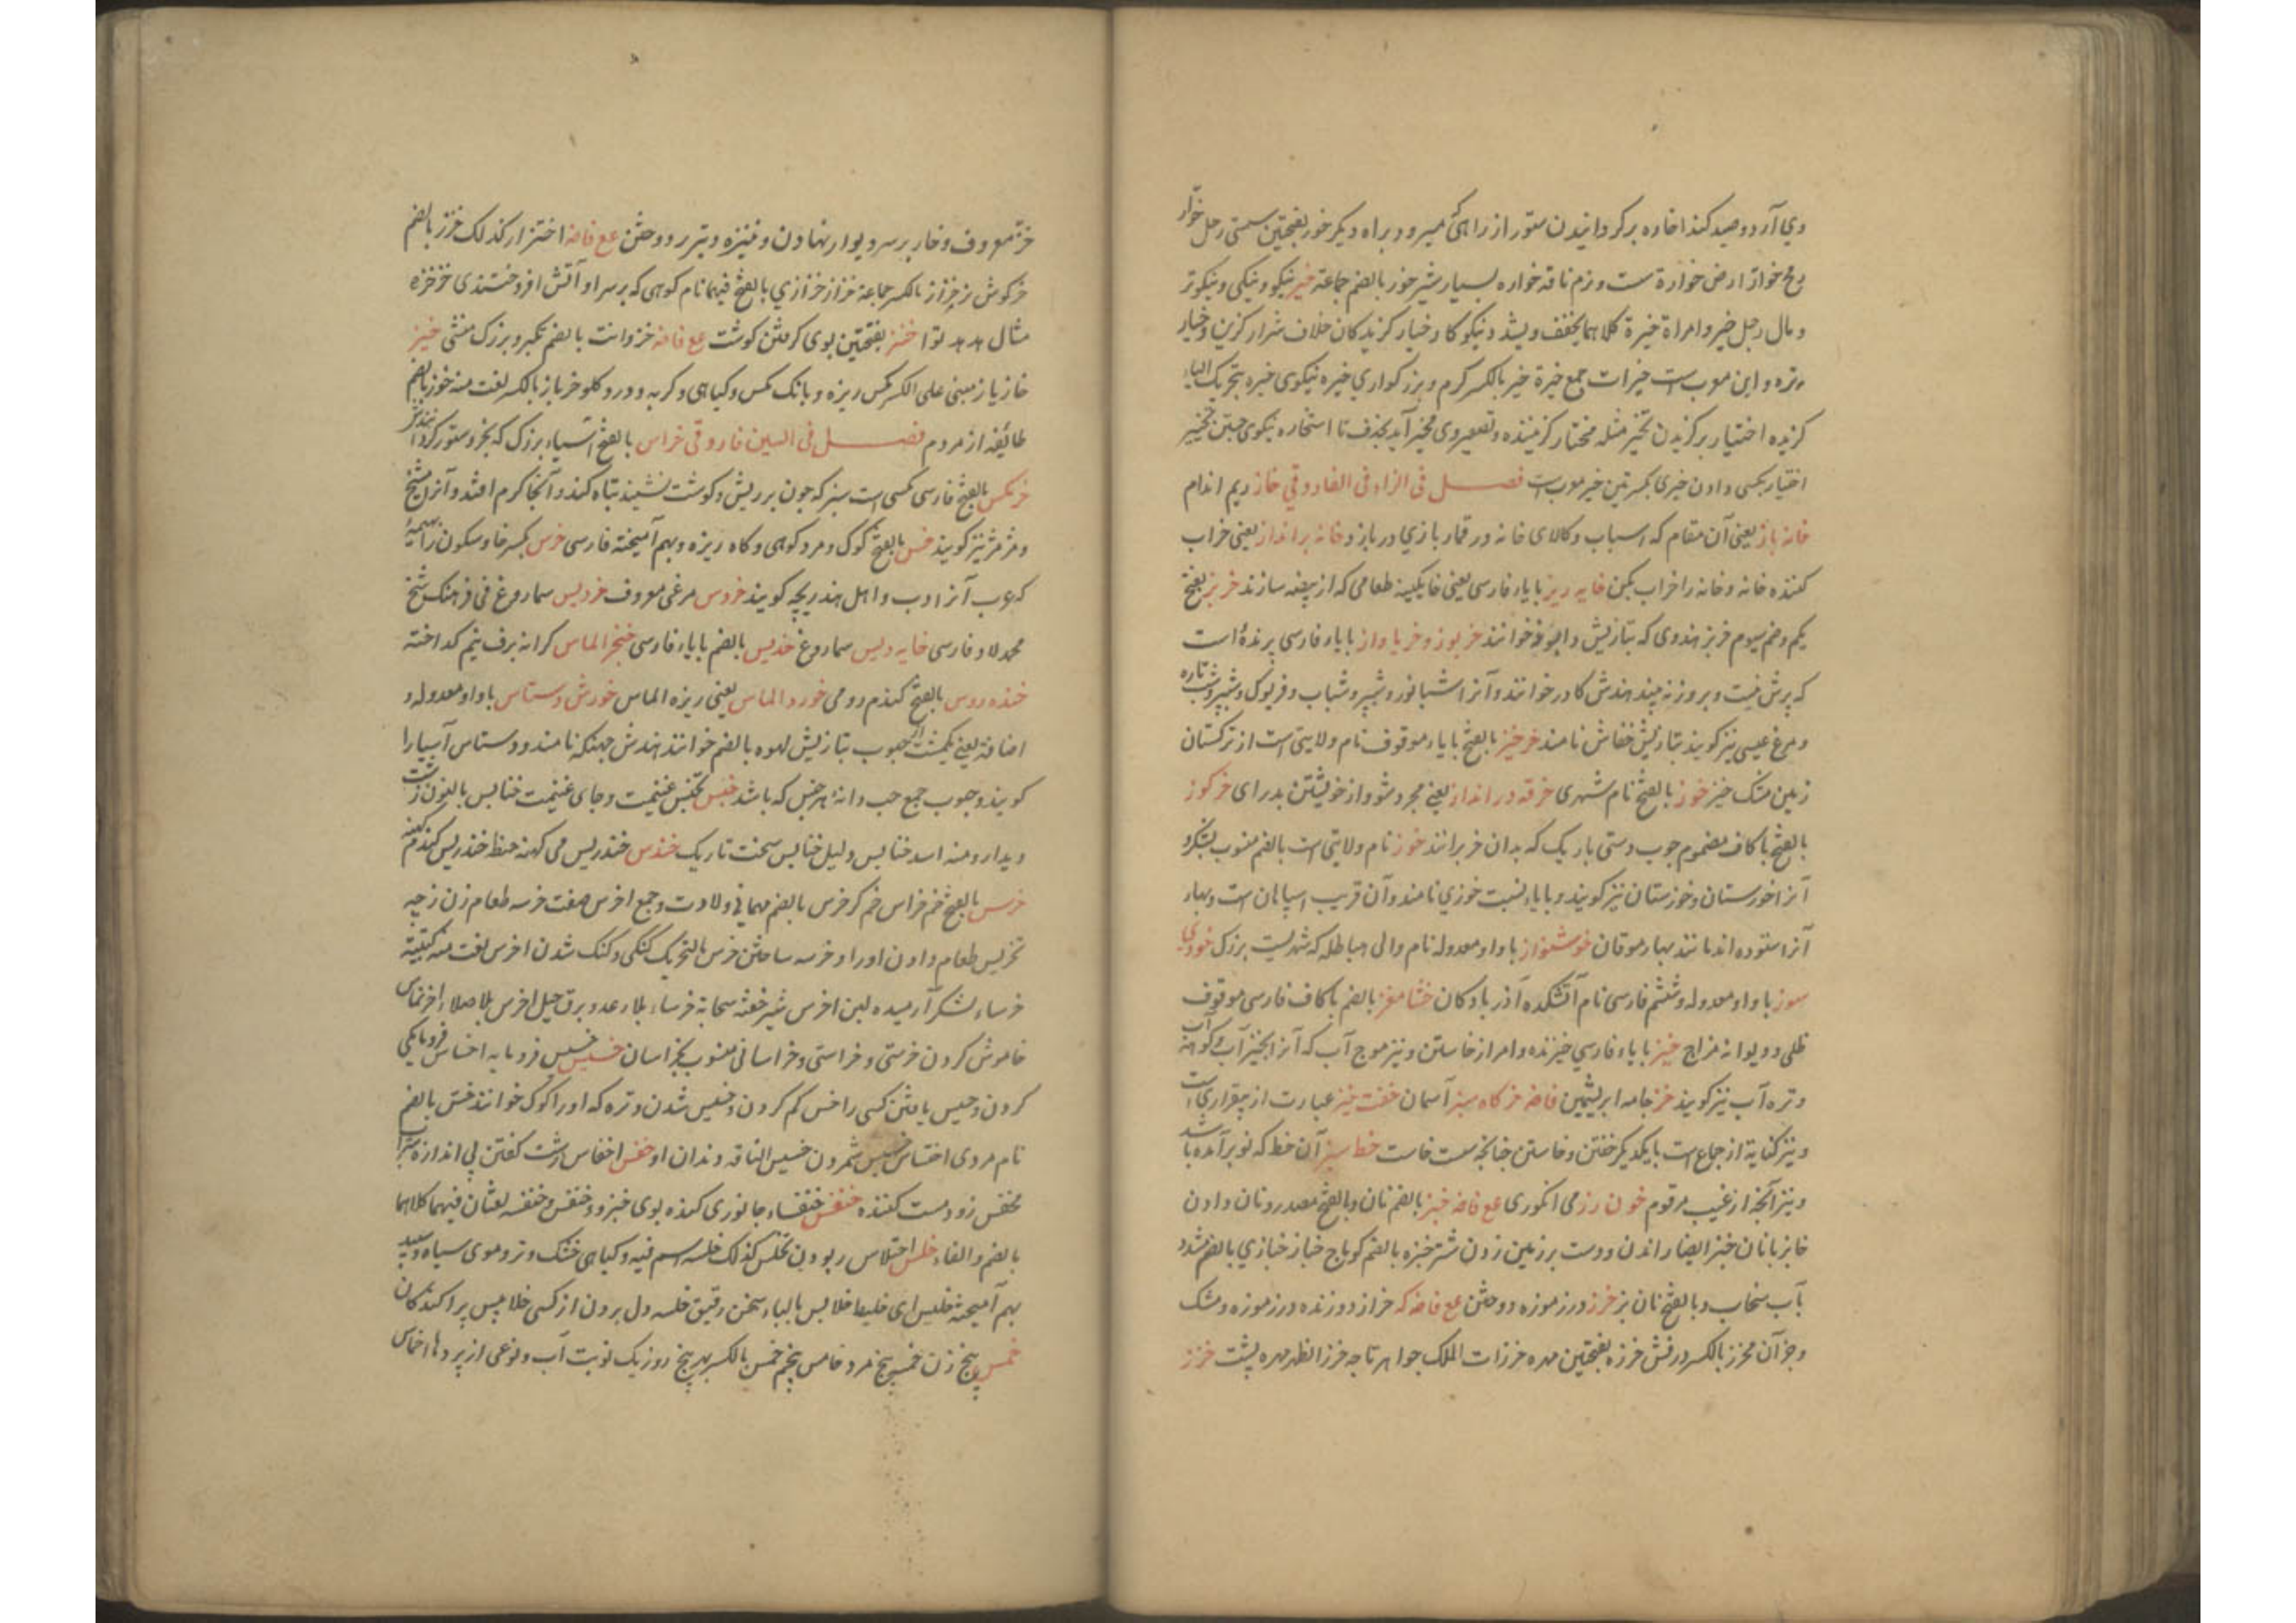 وی آرد و صید کند افاده برگردانیدن ستور از راهی که میرود براه دیگر خور بفتحتین سستی رجل خوار
رمح خوار ارض خوارة سست و نرم ناقه خواره بسیار شیر خور بالضم جماعة خیر نیکو و نیکی و نیکوتر
و مال رجل خیر و امراة خیرة کلاهما یخفف و یشدد نیکوکار خیار گزیدگان خلاف شرار گزین و خیار
تره و این معرب است خیرات جمع خیرة خیر بالکسر کرم و بزرگواری خیره نیکوی خیره بتحریک الیاء
گزیده اختیار برگزیدن تخیر مثله مختار گزیننده و تصغیر وی مخیر آید بحذف تا استخاره نیکوی جستن تخییر
اختیار بکسی دادن خیری بکسرتین خیر معرب است فصل فی الزاء فی الفارو قی خاز ریم اندام
خانه باز یعنی آن مقام که اسباب و کالای خانه در قمار بازی در بازد خانه برانداز یعنی خراب
کننده خانه و خانه را خراب بکن خایه ریز با یاء فارسی یعنی خایگینه طعامی که از بیضه سازند خربز بفتح
یکم و ضم سیوم خربز هندوی که بتازیش خوانند خربوز و خرباواز با باء فارسی پرنده است
که پرش نیست و بروز نه بیند هندش کادر خوانند و آنرا شبانور و شبپر و شباب و فریوک و شبپر
و مرغ عیسی نیز گویند بتازیش خفاش نامند خرخیز بالفتح با یاء موقوف نام ولایتی است از ترکستان
زمین مشک خیز خوز بالفتح نام شهری خرقه در انداز یعنی مجرد شو و از خویشتن بدر ای خرکوز
بالفتح با کاف مضموم چوب دستی باریک که بدان خر برانند خوز نام ولایتی است بالضم منسوب بشکر و
آنرا خورستان و خوزستان نیز گویند و با یاء نسبت خوزی نامند و آن قریب اسپاهان است و بهاء
آنرا ستوده اند مانند بهار موقان خوشنواز با واو معدوله نام والی هیاطله که شهریست بزرگ خودی
سوز با واو معدوله و ششم فارسی نام آتشکده آذربادکان خشامغز بالضم با کاف فارسی موقوف
ظلی و دیوانه مزاج خیز با یاء فارسی خیزنده و امر از خاستن و نیز موج آب که آنرا آبخیز
و تره آب نیز گویند خز جامه ابریشمین فاضه خرکاه سبز آسمان خفت خیز عبارت از بیقراری است
و نیز کنایة از جماع است بایکدیگر خفتن و خاستن چنانچه خاست خط سبز آن خط که نو برآمده باشد
و نیز آنچه از غیب مرقوم خون رز می انگوری مع فاضه خبز بالضم نان و بالفتح مصدر و نان دادن
خابز نانبان خبز ایضا راندن و دست بر زمین زدن شتر خبزه بالضم کوماج خباز خبازی بالضم مشدد
بآب سخاب و بالفتح نان بز خرز درز موزه دوختن مع فاضه که خراز دوزنده درز موزه و مشک
و جز آن مخرز بالکسر درفش خرزه بفتحتین مهره خرزات الملک جواهر تاجه خرز الظهر مهره پشت خزز
خز معروف و خار بر سر دیوار نهادن و نیزه و تیر ردوختن مع فاضه اختزاز کذلک خزز بالضم
خرگوش نر خزاز بالکسر جماعة خزاز خزازی بالفتح فیهما نام کوهی که بر سر او آتش افروختندی خزخزه
مثال هدهد توا خنز بفتحتین بوی گرفتن گوشت مع فاضه خنزوانت بالضم تکبر و بزرگ منشی خیز
خازباز مبنی علی الکسر مگس ریزه و بانگ مگس و گیاهی و گربه و درد گلو خرباز بالکسر لغت منه خوز بالضم
طائفه از مردم فصل فی السین فارو قی خراس بالفتح آسیاء بزرگ که بخر و ستور گردانند
خرمگس بالفتح فارسی مگسی است سبز که چون بر ریش و گوشت نشیند تباه کند و آنجا کرم افتد و آنرا
و مژمژ نیز گویند خس بالفتح کوک و مرد کوهی و کاه ریزه و بهم آمیخته فارسی خرس بکسر خا و سکون را
که عرب آنرا دب و اهل هند ریچه گویند خروس مرغی معروف خردیس سماروغ فی فرهنگ شیخ
محمد لاد فارسی خایه دیس سماروغ خدیس بالضم با یاء فارسی خنجر الماس کرانه برف نیم گداخته
خنده روس بالفتح گندم رومی خورد الماس یعنی ریزه الماس خورش دستاس با واو معدوله و
اضافة یعنی یکمشت از حبوب بتازیش لهوه بالضم خوانند هندش جهینکه نامند و دستاس آسیا را
گویند و حبوب جمع حب دانه هر جنس که باشد خبس تخبس غنیمت و جای غنیمت خنابس بالنون زشت
دیدار و منه اسد خنابس و لیل خنابس سخت تاریک خندس خندریس می کهنه حنطة خندریس گندم کهنه
خرس بالفتح خم خراس خم گر خرس بالضم مهمانی ولادت و جمع اخرس صفت خرسه طعام زن زچه
تخریس طعام دادن او را و خرسه ساختن خرس بالتحریک گنگی و گنگ شدن اخرس لغت منه کتیبة
خرساء لشکر آرمیده لبن اخرس شیر خفته سحابة خرساء بلا رعد و برق جبل اخرس بلا صدا اخراس
خاموش کردن خرسی و خراسی و خراسانی منسوب بخراسان خسیس خسیس فرومایه اخساس فرومایگی
کردن و خسیس یافتن کسی را خس کم کردن و خسیس شدن و تره که او را کوک خوانند خس بالضم
نام مردی اختساس خسیس شمردن خسیس الناقه دندان او خفس اخفاس زشت گفتن بی اندازه شراب
مخفس زود مست کننده خنفس خنفساء جانوری گنده بوی خبزدو خنفس و خنفسه لغتان فیهما کلاهما
بالضم و الفاء خلس اختلاس ربودن تخلس کذلک خلسه اسم فیه و گیاهی خشک و تر و موی سیاه و سپید
بهم آمیخته خلیس ای خلیط خلابس بالباء سخن رقیق خلسه دل بردن از کسی خلابیس پراکندگان
خمس پنج زن خمسه پنج مرد خامس پنجم خمس بالکسر بهر پنج روز یک نوبت آب و نوعی از بردها اخماس